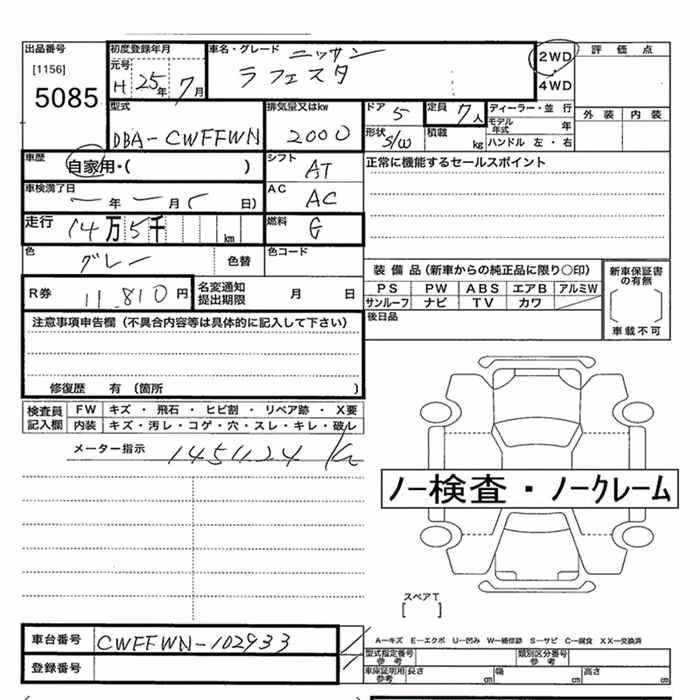 出品番号 初度登録年月 車名・グレード ニッサン 2WD 評価点
[1156] 元号 ラフェスタ
5085 H 25年 7月 4WD
型式 排気量又はkw ドア 5 定員 7人 ディーラー・並行 外装 内装
DBA-CWFFWN 2000 形状 S/W 積載 kg モデル年式 年
ハンドル 左・右
車歴 自家用・( ) シフト AT 正常に機能するセールスポイント
車検満了日 ー年 ー月( 日) AC AC
走行 14万5千 km 燃料 G
色 グレー 色替 色コード
装備品(新車からの純正品に限り○印) 新車保証書の有無
R券 11,810円 名変通知提出期限 月 日 PS PW ABS エアB アルミW
サンルーフ ナビ TV カワ 車載不可
注意事項申告欄(不具合内容等は具体的に記入して下さい) 後日品
修復歴 有(箇所 )
検査員記入欄 FW キズ・飛石・ヒビ割・リペア跡・X要
内装 キズ・汚レ・コゲ・穴・スレ・キレ・破レ
メーター指示 145124
ノー検査・ノークレーム
スペアT
[ ]
車台番号 CWFFWN-102933
A−キズ E−エクボ U−凹み W−補修跡 S−サビ C−腐食 XX−交換済
登録番号 型式指定番号 参考 類別区分番号 参考
車庫証明用参考 長さ cm 幅 cm 高さ cm